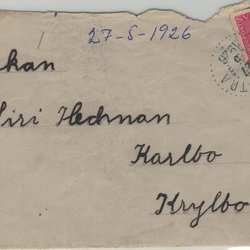 27-8-1926
kan
Siri Hedman
Karlbo
Krylbo